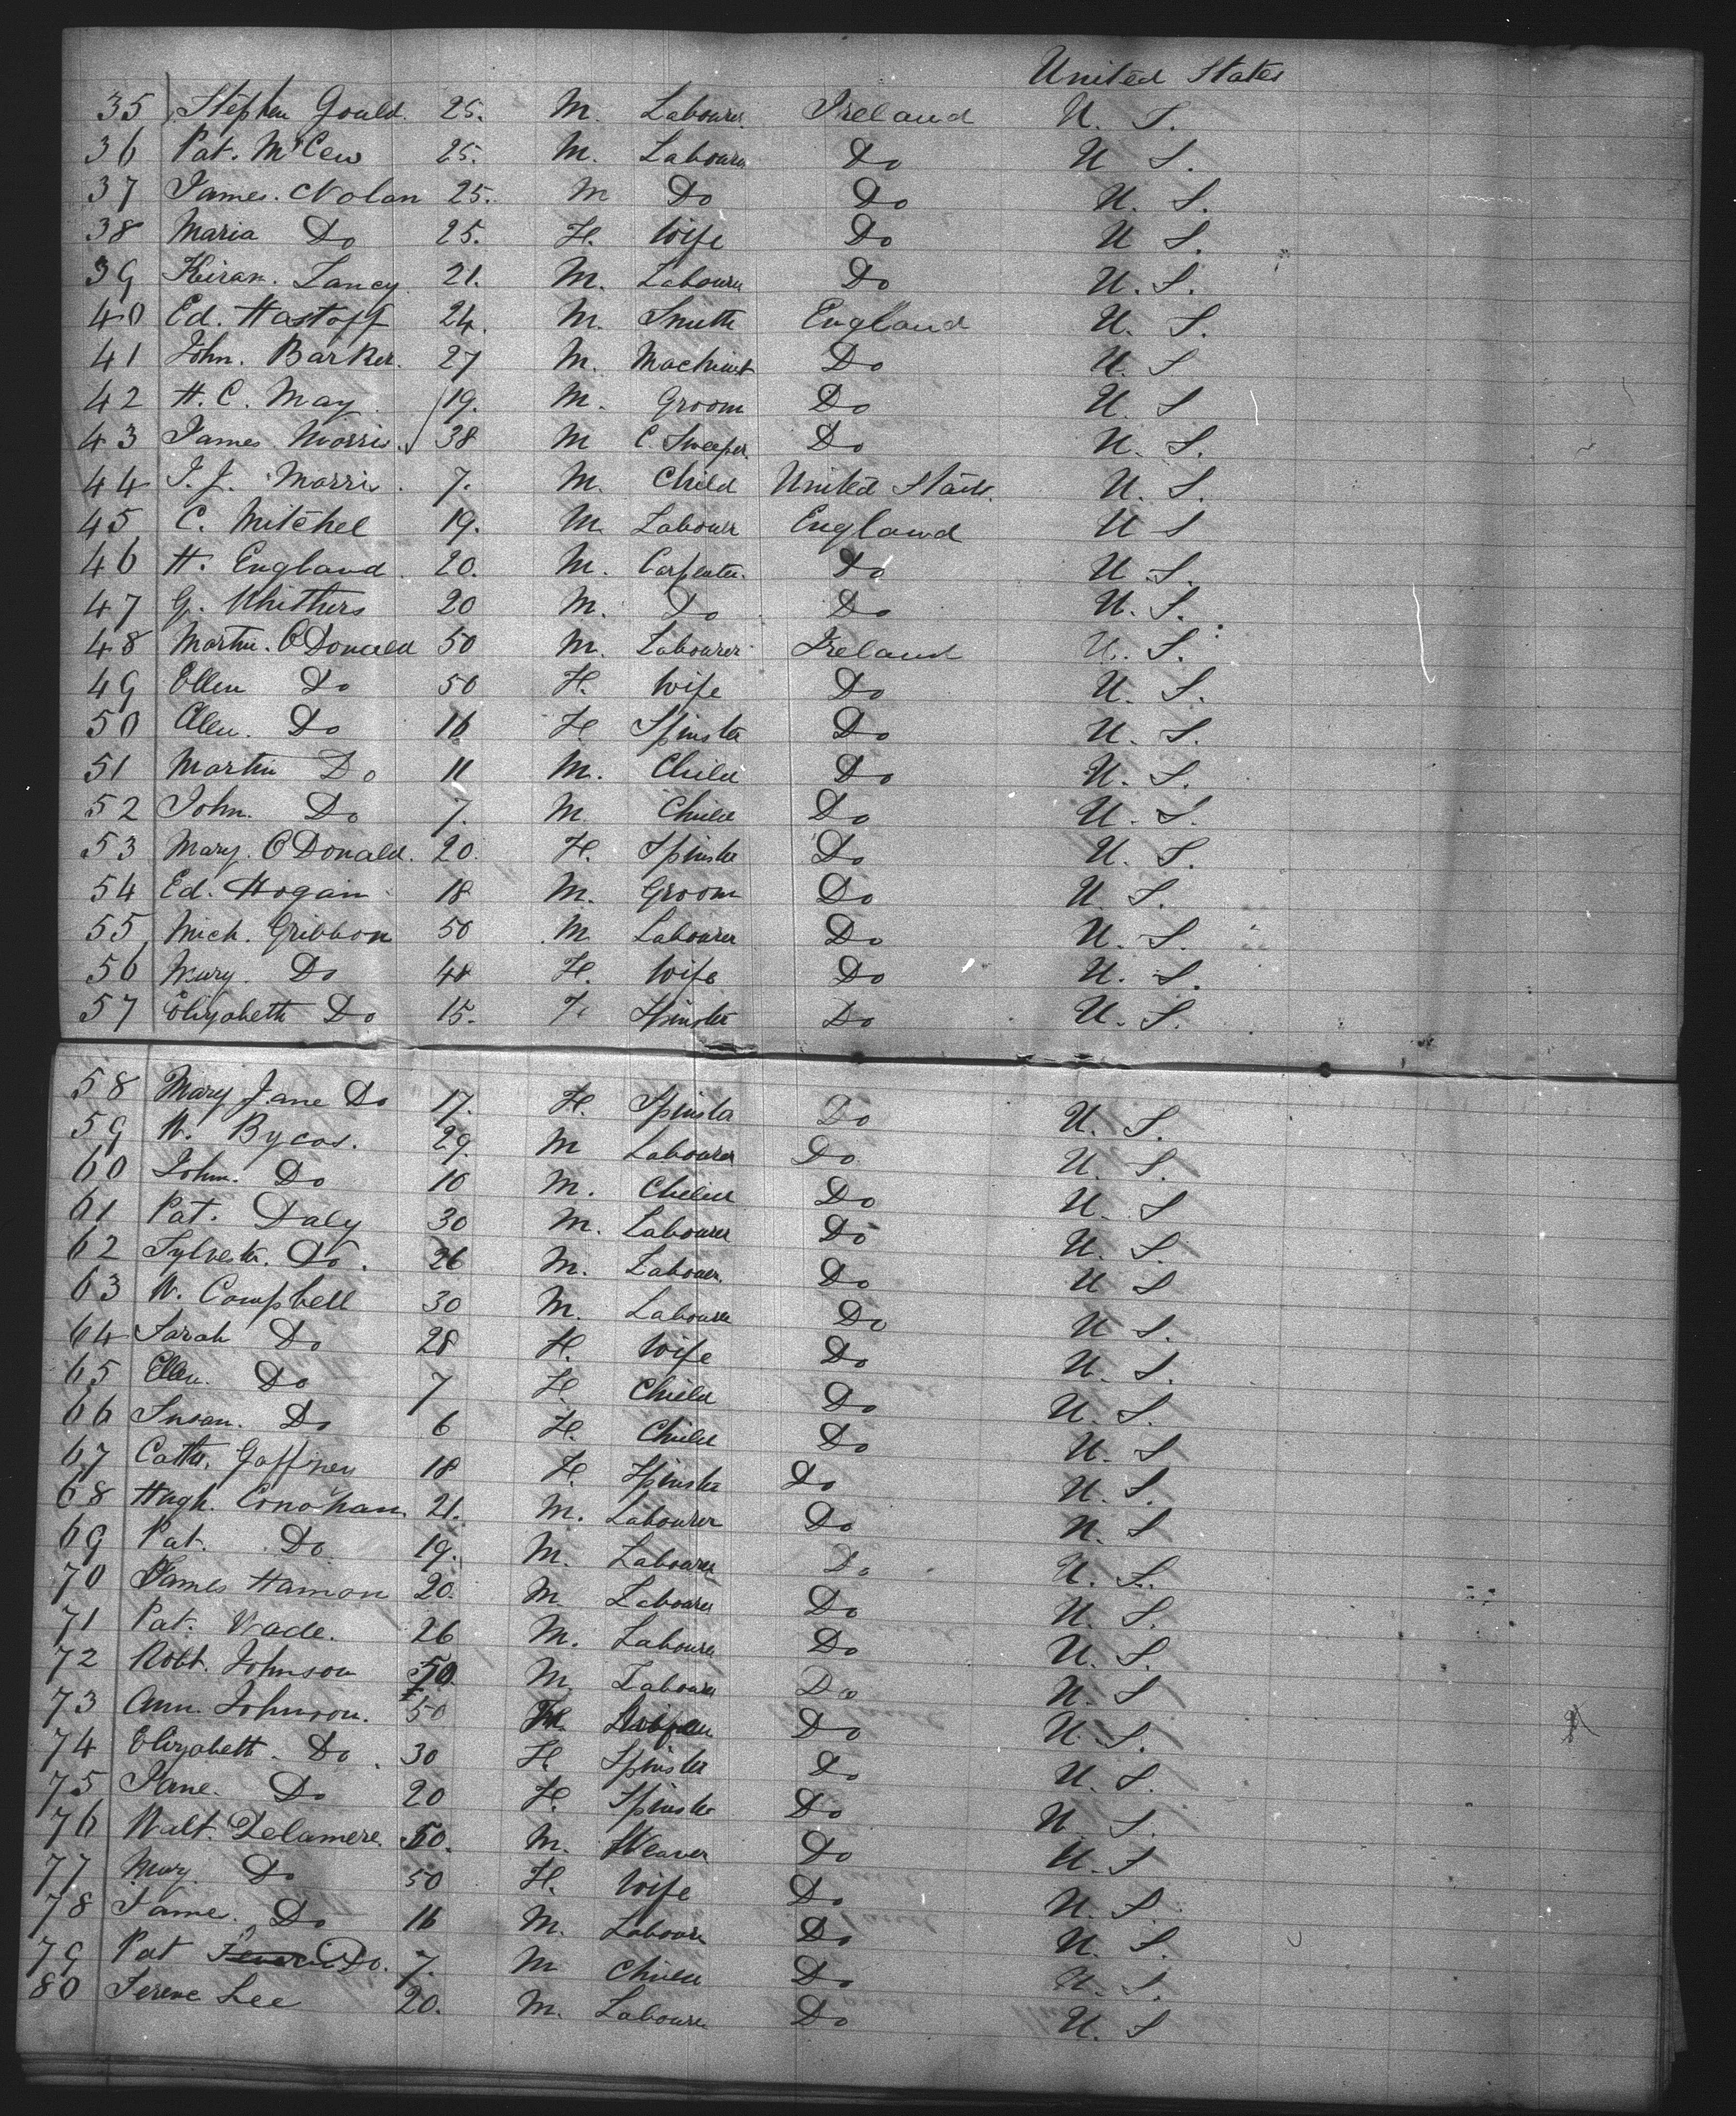 United States
35 Stephen Gould. 25. M. Labourer Ireland U. S.
36 Pat. McCew 25. M. Labourer Do U S.
37 James. Nolan 25. M Do Do U. S.
38 Maria Do 25. F. Wife Do U S.
39 Kieran. Lancy 21. M. Labourer Do U. S.
40 Ed. Hastoff 24. M. Smith England U. S.
41 John. Barker. 27 M. Machinist Do U. S
42 H. C. May 19. M. Groom Do U. S
43 James Morris. 38 M C. Sweeper Do U. S.
44 J. J. Morris. 7. M. Child United States. U. S.
45 C. Mitchel 19. M Labourer England U S
46 H. England 20. M. Carpenter. Do U S.
47 G. Whithers 20 M. Do Do U. S.
48 Martin. O'Donald 50 M. Labourer Ireland U. S.
49 Ellen Do 50 F. Wife Do U. S.
50 Ellen. Do 16 F. Spinster Do U. S.
51 Martin Do 11 M. Child Do U. S.
52 John. Do 7. M. Child Do U. S.
53 Mary. O'Donald. 20. F. Spinster Do U. S.
54 Ed. Hogan 18 M. Groom Do U. S.
55 Mich. Gribbon 50 M Labourer Do U. S.
56 Mary. Do 48 F. Wife Do U. S.
57 Elizabeth Do 15. F. Spinster Do U. S.
58 Mary Jane Do 17. F. Spinster Do U. S.
59 W. Bycos. 29. M Labourer Do U. S.
60 John. Do 10 M. Child Do U. S
61 Pat. Daly 30 M. Labourer Do U. S.
62 Sylvester. Do. 26 M. Labourer. Do U S
63 W. Campbell 30 M. Labourer Do U S.
64 Sarah Do 28 F. Wife Do U. S.
65 Ellen. Do 7 F. Child Do U. S.
66 Susan. Do 6 F. Child Do U. S
67 Cathr. Gaffney 18 F. Spinster Do U. S.
68 Hugh. Conohan. 21. M. Labourer Do U. S
69 Pat. Do 19. M. Labourer Do U. S.
70 James Hamon 20. M. Labourer Do U. S.
71 Pat. Wade. 26 M. Labourer Do U. S.
72 Robt. Johnson 50. M. Labourer Do U. S
73 Ann. Johnson. 50 F. Do U. S.
74 Elizabeth. Do. 30 F. Spinster Do U. S.
75 Jane. Do 20 F. Spinster Do U S.
76 Walt. Delamere. 50. M. Weaver Do U. S
77 Mary. Do 50 F. Wife Do U. S.
78 James. Do 16 M. Labourer Do U. S.
79 Pat Do. 7. M Child Do U. S.
80 Terene Lee 20. M. Labourer Do U. S